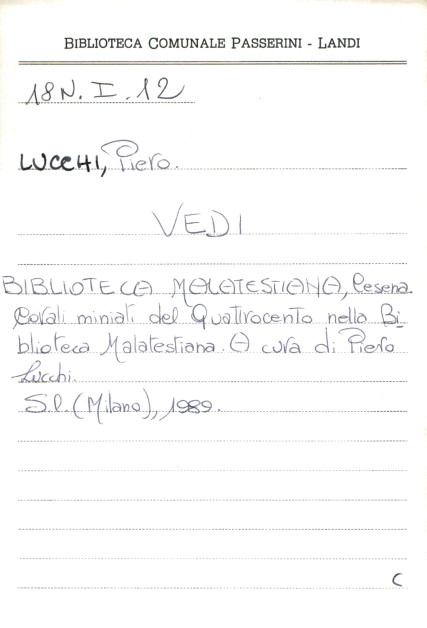 BIBLIOTECA COMUNALE PASSERINI - LANDI
18N. I. 12
LUCCHI, Piero.
VEDI
BIBLIOTECA MALATESTIANA, Cesena.
Corali miniati del Quattrocento nella Bi-
blioteca Malatestiana. A cura di Piero
Lucchi.
S.l. (Milano), 1989.
C